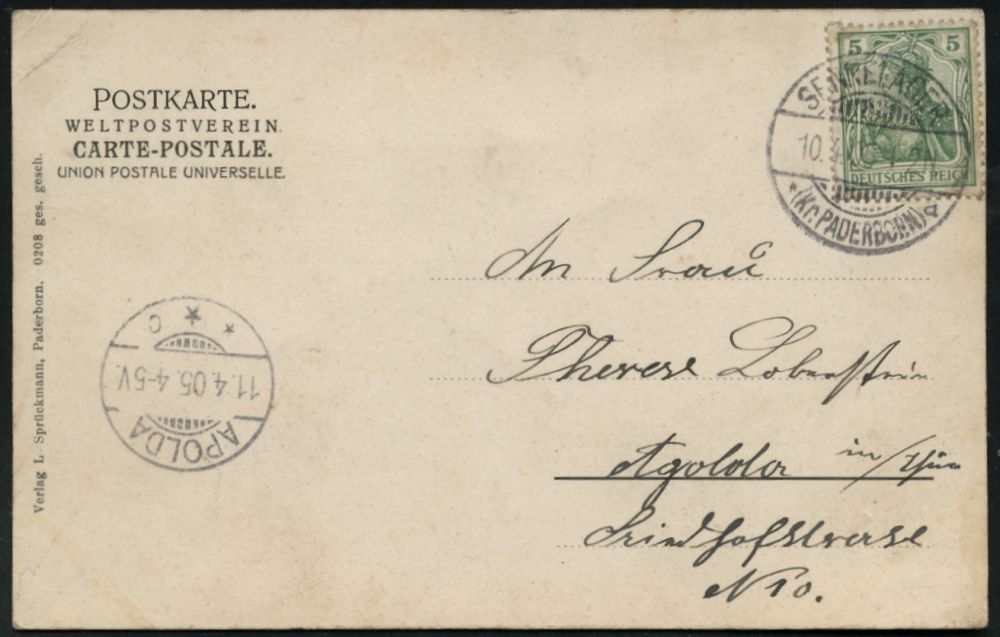 POSTKARTE.
WELTPOSTVEREIN.
CARTE-POSTALE.
UNION POSTALE UNIVERSELLE.
Verlag L. Sprückmann, Paderborn. 0208 ges. gesch.
5 5
DEUTSCHES REICH
SENNELAGER
10.4.05
(Kr. PADERBORN) a
An Frau
Therese Loberstein
Apolda in Thür
Friedhofstrasse
N 10.
c
11.4.05.4-5V.
APOLDA